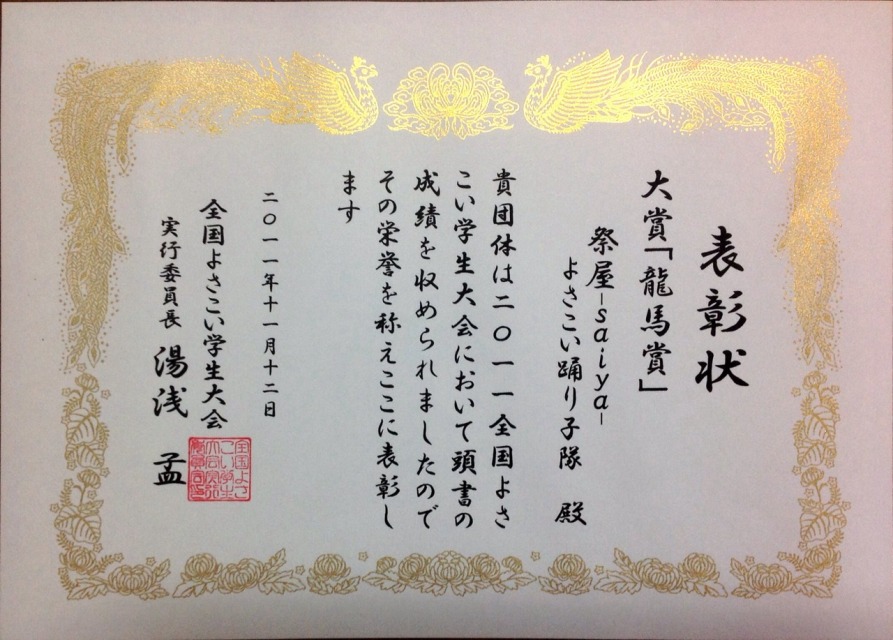 表彰状
大賞「龍馬賞」
祭屋-saiya-
よさこい踊り子隊 殿
貴団体は二〇一一全国よさ
こい学生大会において頭書の
成績を収められましたので
その栄誉を称えここに表彰し
ます
二〇一一年十一月十二日
全国よさこい学生大会
実行委員長 湯浅 孟